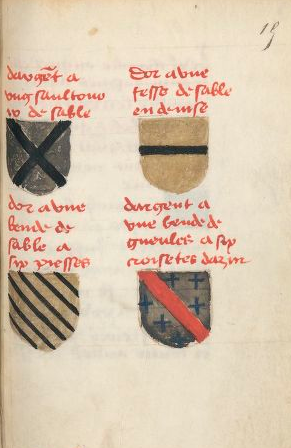 19
dargēt a
ung saultouo
ir de sable
Dor a une
fesse de sable
en deuise
dor a une
bende de
sable a
six piesses
dargent a
une bende de
gueules a six
croisetes dazur